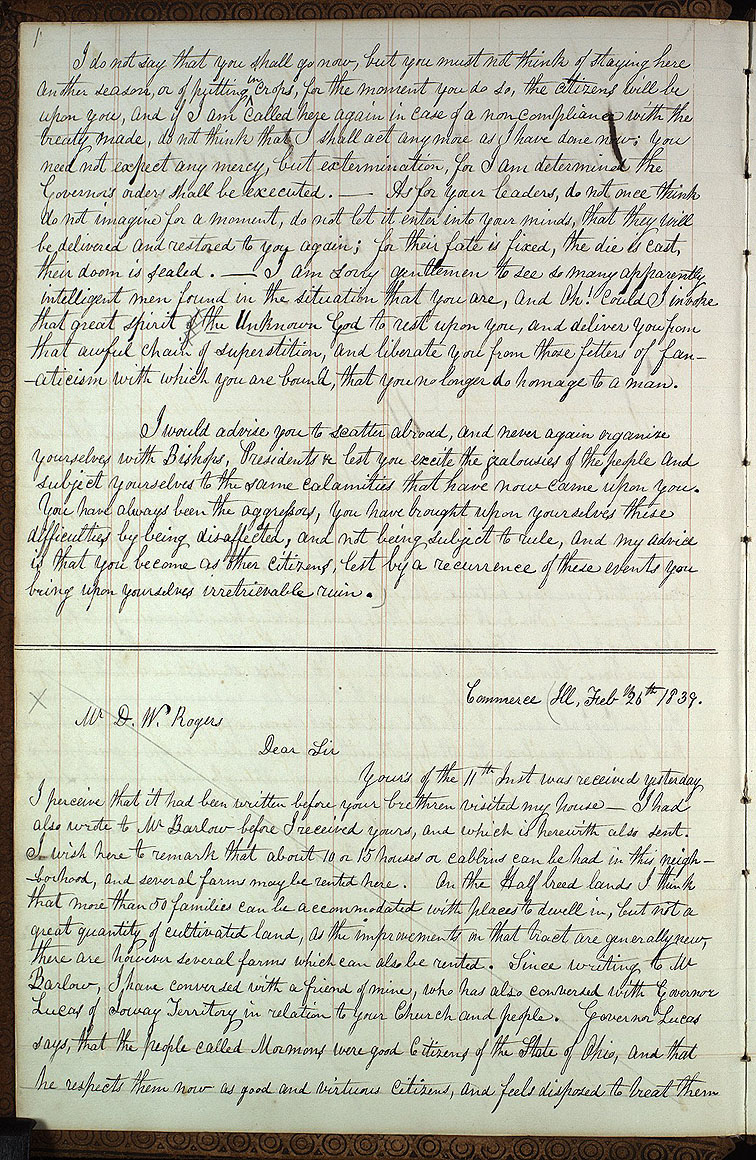 1
I do not say that you shall go now, but you must not think of staying here
another season, or of putting in crops, for the moment you do so, the citizens will be
upon you, and if I am called here again in case of a noncompliance with the
treaty made, do not think that I shall act anymore as I have done now; you
need not expect any mercy, but extermination, for I am determined the
Governor's orders shall be executed. — As for your leaders, do not once think
do not imagine for a moment, do not let it enter into your minds, that they will
be delivered and restored to you again; for their fate is fixed, the die is cast,
their doom is sealed. — I am sorry gentlemen to see so many apparently
intelligent men found in the situation that you are, and Oh! Could I invoke
that great spirit of the Unknown God to rest upon you, and deliver you from
that awful chain of superstition, and liberate you from those fetters of fan-
-aticism with which you are bound, that you no longer do homage to a man.
I would advise you to scatter abroad, and never again organize
yourselves with Bishops, Presidents &c lest you excite the jealousies of the people and
subject yourselves to the same calamities that have now came upon you.
You have always been the aggressors, you have brought upon yourselves these
difficulties by being disaffected, and not being subject to rule, and my advice
is that you become as other citizens, lest by a recurrence of these events you
bring upon yourselves irretrievable ruin.)
Commerce (Ill, Feb 26th 1839.
X
Mr D. W. Rogers
Dear Sir
Yours of the 11th Inst was received yesterday
I perceive that it had been written before your brethren visited my house — I had
also wrote to Mr Barlow before I received yours, and which is herewith also sent.
I wish here to remark that about 10 or 15 houses or cabbins can be had in this neigh-
-borhood, and several farms may be rented here. On the Half breed lands I think
that more than 50 families can be accommodated with places to dwell in, but not a
great quantity of cultivated land, as the improvements on that tract are generally new,
there are however several farms which can also be rented. Since writing to Mr
Barlow, I have conversed with a friend of mine, who has also conversed with Governor
Lucas of Ioway Territory in relation to your Church and people. Governor Lucas
says, that the People called Mormons were good Citizens of the State of Ohio, and that
he respects them now as good and virtuous citizens, and feels disposed to treat them